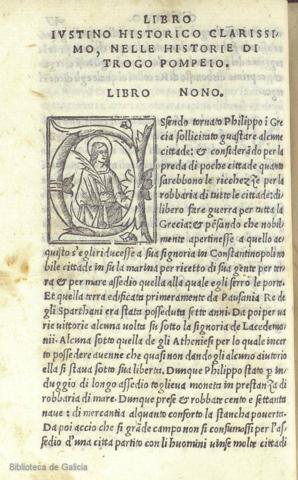 LIBRO
IVSTINO HISTORICO CLARISSI
MO, NELLE HISTORIE DI
TROGO POMPEIO.
LIBRO NONO.
Ssendo tornato Philippo i Gre
cia sollicitato guastare alcune
cittade: & considerādo per la
preda di poche cittade quanto
sarebbono le richezze per la
robbaria di tutte le cittade: di
libero fare guerra per tutta la
Grecia: & pēsando che nobil
mente apertinesse a quello ac
quisto s'egli riducesse a sua signoria in Constantinopoli no
bile cittade in su la marina per ricetto di sua gente per ter
ra & per mare assedio quella alla quale egli serrò le porte.
Et quella terra edificata primeramente da Pausania Re de
gli Sparthani era stata posseduta sette anni. Da poi per ua
rie uittorie alcuna uolta fu sotto la signoria de Lacedemo
nii. Alcuna sotto quella de gli Atheniesi per lo quale incer
to possedere auenne che quasi non dandogli alcuno aiutorio
ella si staua sotto sua libertà. Dunque Philippo stato per in
duggio di longo assedio toglieua moneta in prestanza di
robbaria di mare. Dunque prese & robbate cento e settanta
naue: di mercantia alquanto conforto la stancha pouertà.
Da poi accio che si grāde campo non si consumossi per l'as
sedio d'una citta partito con li huomini uinse molte cittadi
Biblioteca de Galicia